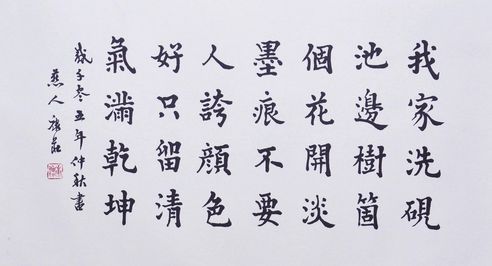 我家洗硯
池邊樹箇
個花開淡
墨痕不要
人誇顏色
好只留清
氣滿乾坤
零五年仲秋
燕人